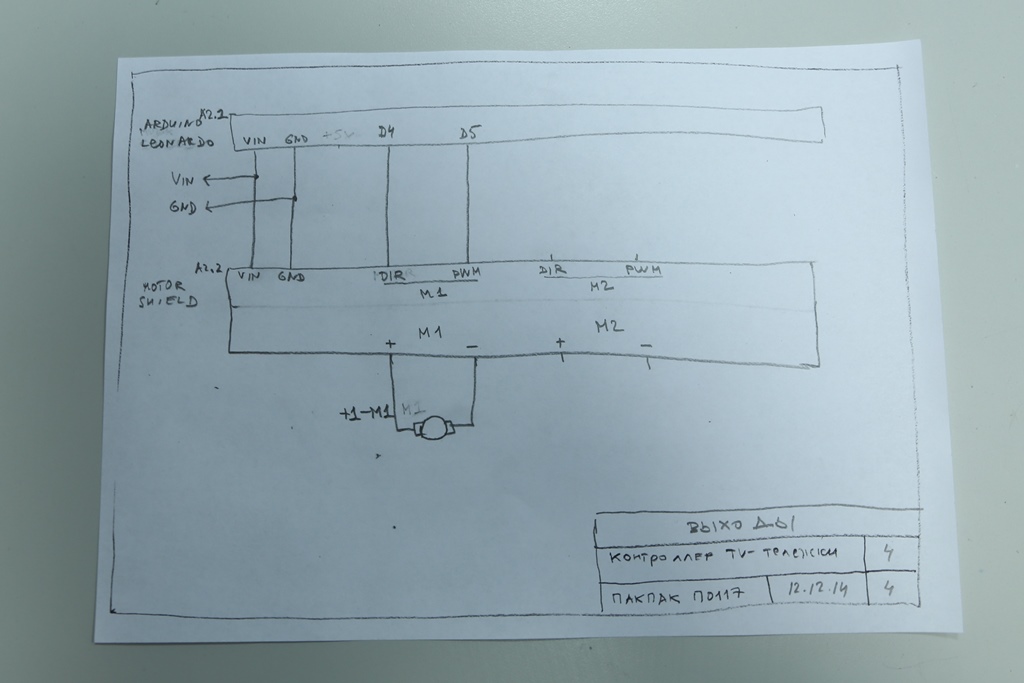 A2.1
ARDUINO
LEONARDO
VIN GND +5V D4 D5
VIN
GND
A2.2
MOTOR
SHIELD
VIN GND DIR PWM DIR PWM
M1 M2
M1 M2
+ − + −
+1-M1 M1
ВЫХОДЫ
КОНТРОЛЛЕР TV-ТЕЛЕЖКИ 4
ПАКПАК П0117 12.12.14 4